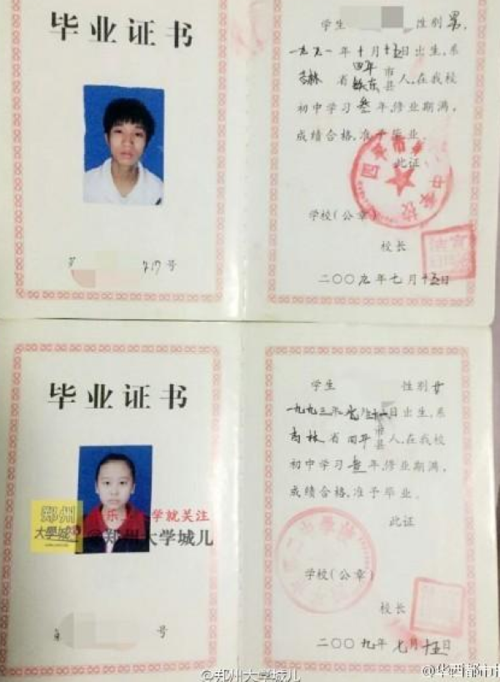 毕业证书
417号
学生 性别 男,
一九九一年十月十五日出生,系
吉林省四平市
县人,在我校
初中学习叁年,修业期满,
成绩合格,准予毕业。
此证
学校(公章)
校长
二〇〇九年七月十五日
毕业证书
郑州
大學城
乐 学就关注
@郑州大学城儿
号
学生 性别 女
一九九三年 日出生,系
吉林省四平市
县人,在我校
初中学习叁年,修业期满,
成绩合格,准予毕业。
此证
学校(公章)
校长
二〇〇九年七月十五日
@郑州大学城儿
@华西都市